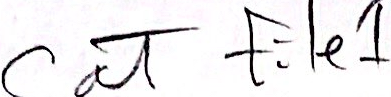 cat File1